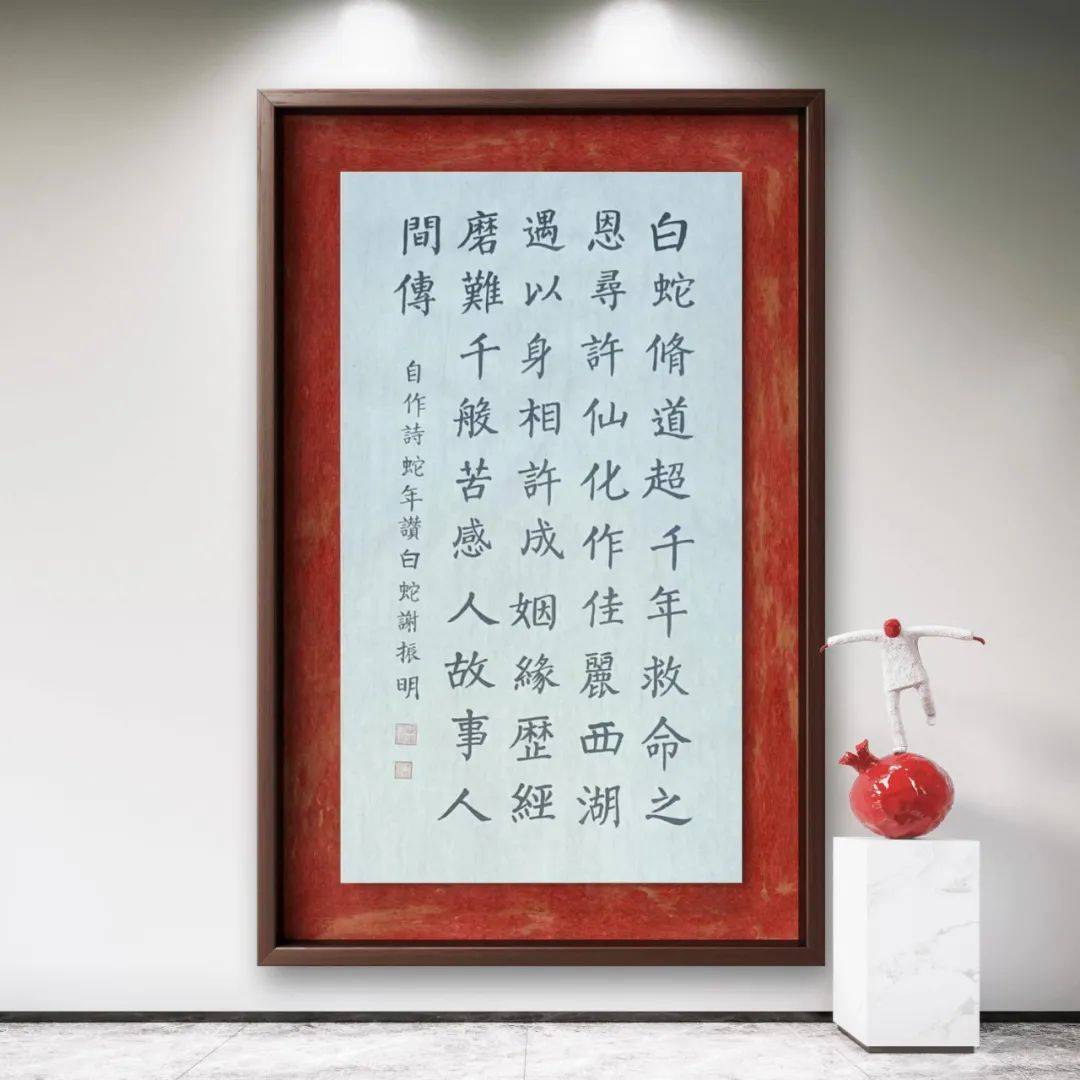 白蛇脩道超千年救命之
恩尋許仙化作佳麗西湖
遇以身相許成姻緣歷經
磨難千般苦感人故事人
間傳
自作詩蛇年讚白蛇謝振明